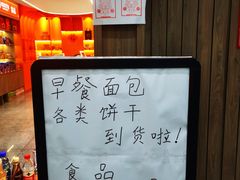 早餐面包
各类饼干
到货啦！
食品